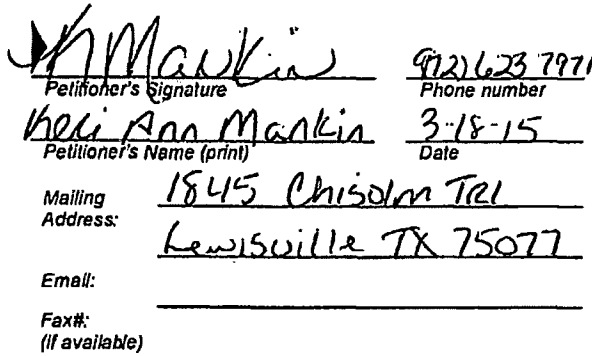 K Mankin (972) 623 7971
Petitioner's Signature Phone number
Keri Ann Mankin 3-18-15
Petitioner's Name (print) Date
Mailing Address: 1845 Chisolm TRl
Lewisville TX 75077
Email:
Fax#:
(if available)